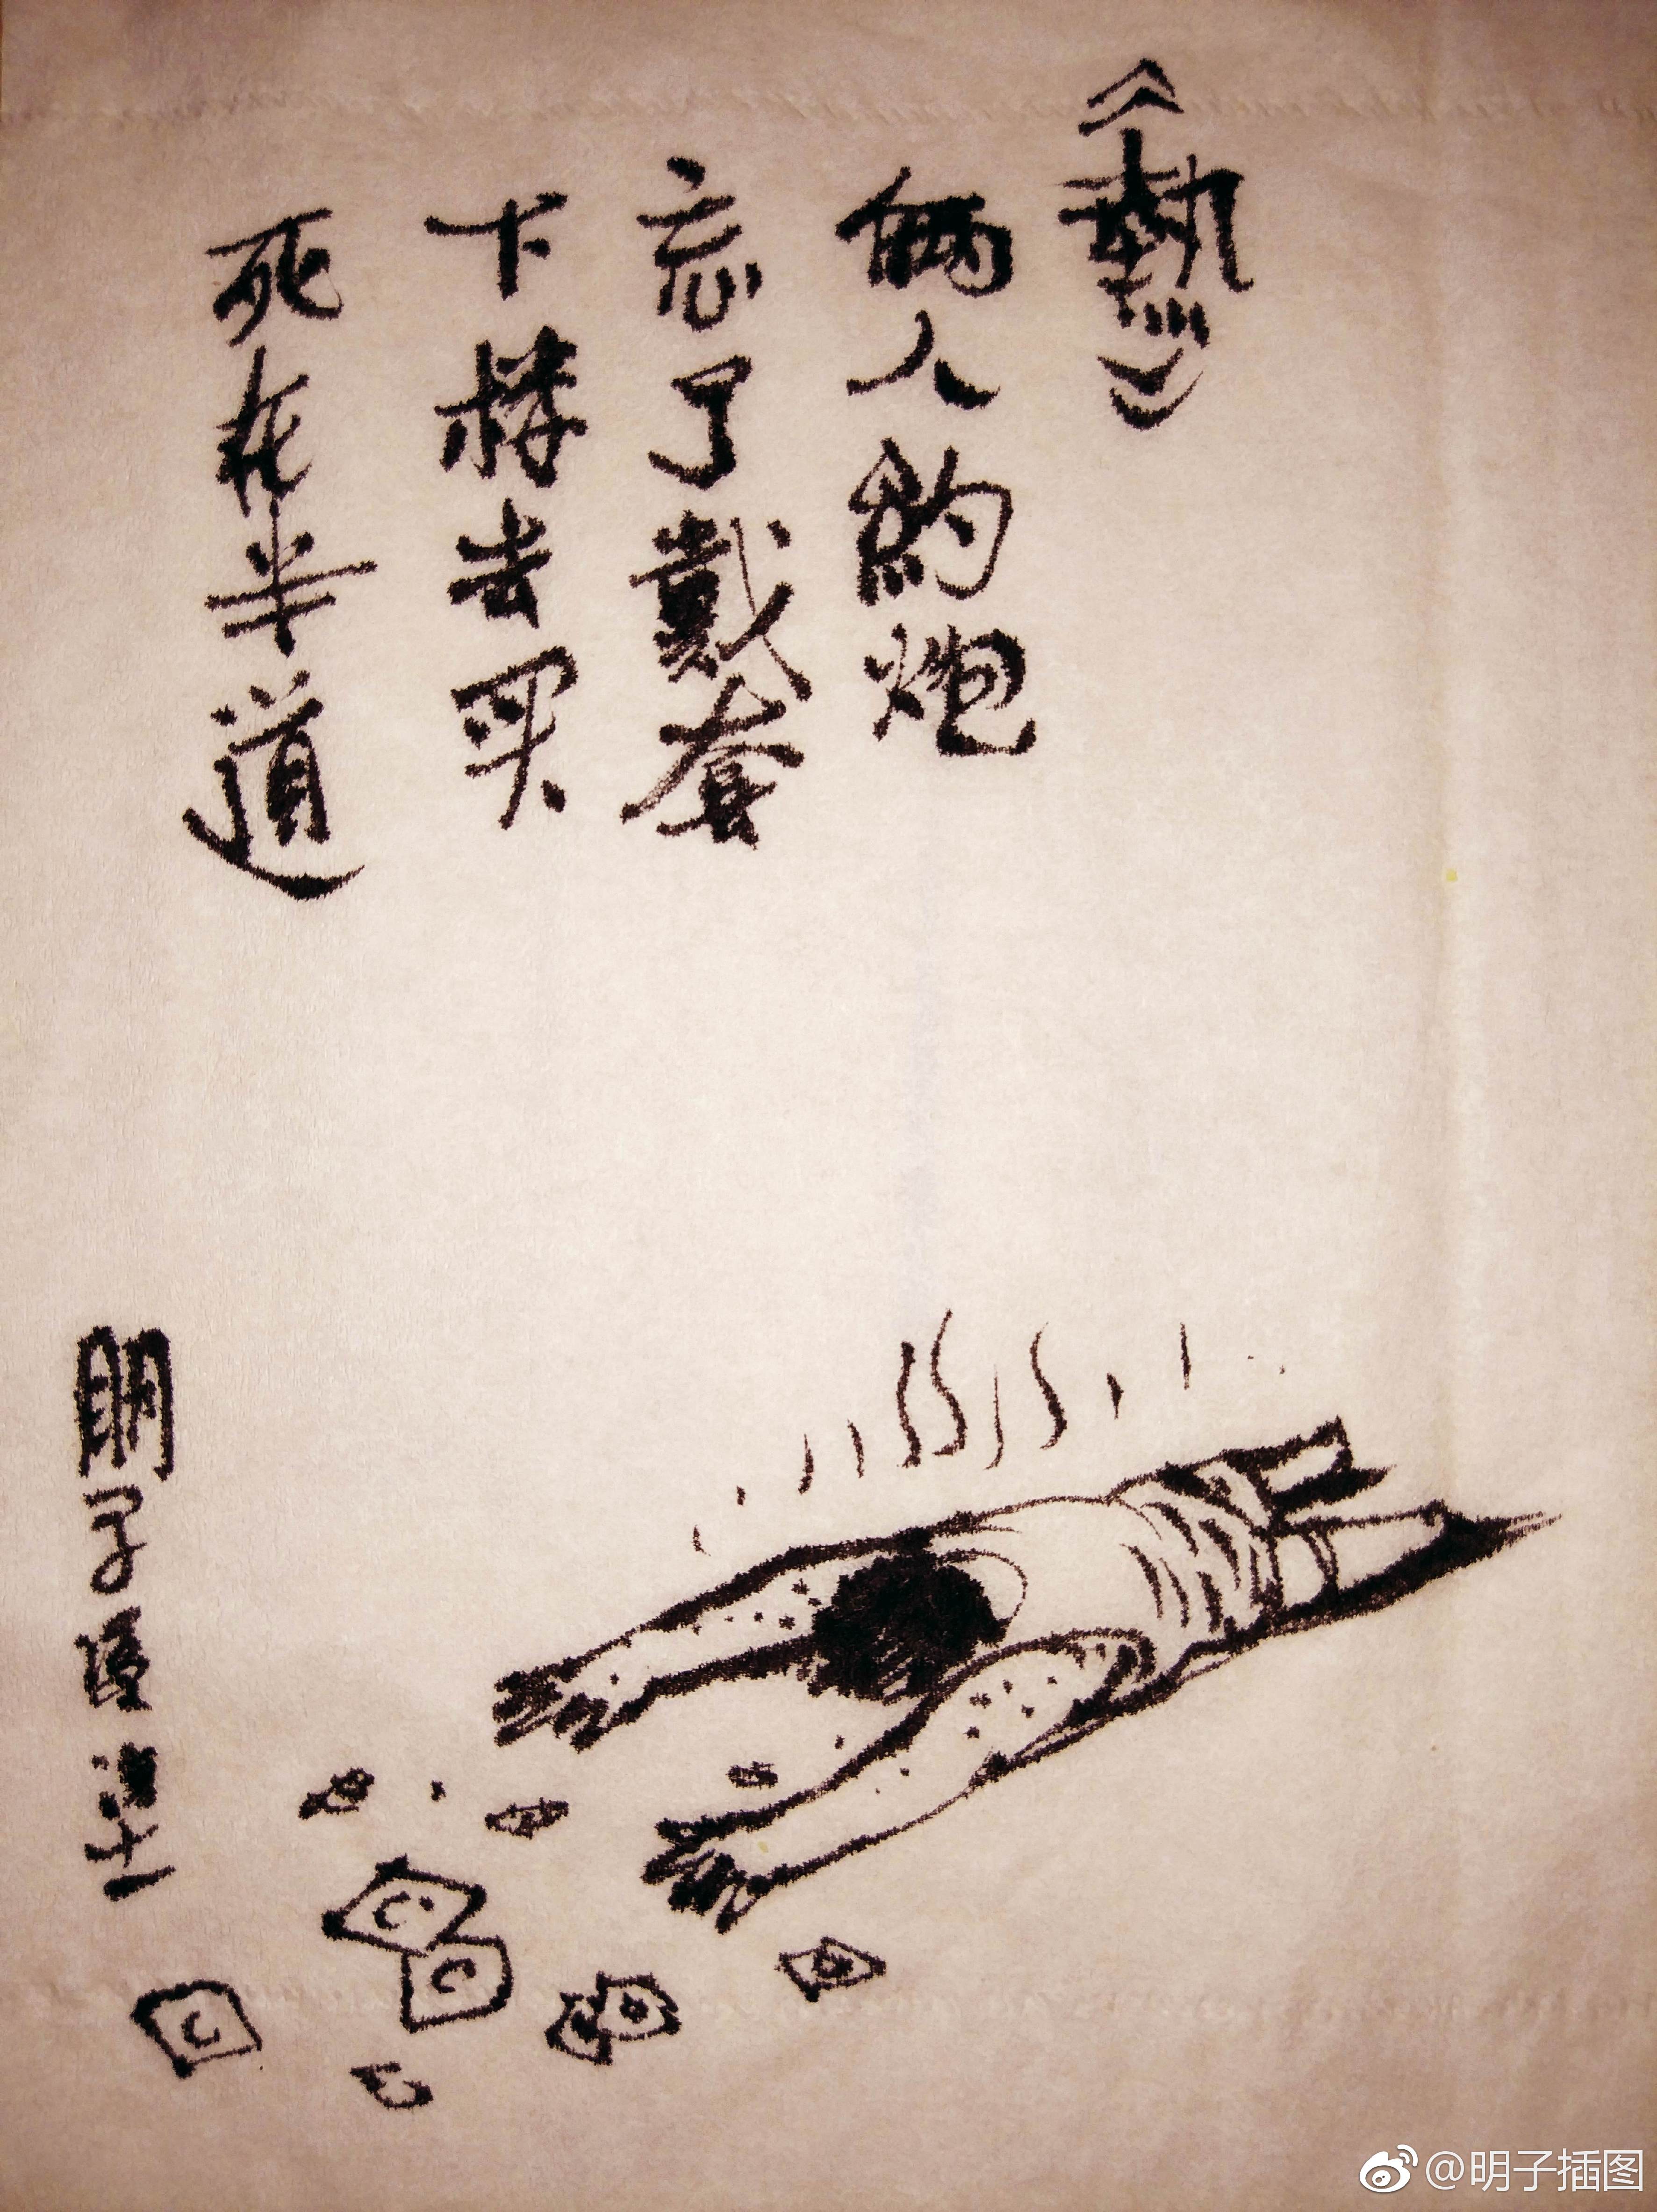 《熱》
俩人約炮
忘了戴套
下楼去买
死在半道
明子
@明子插图